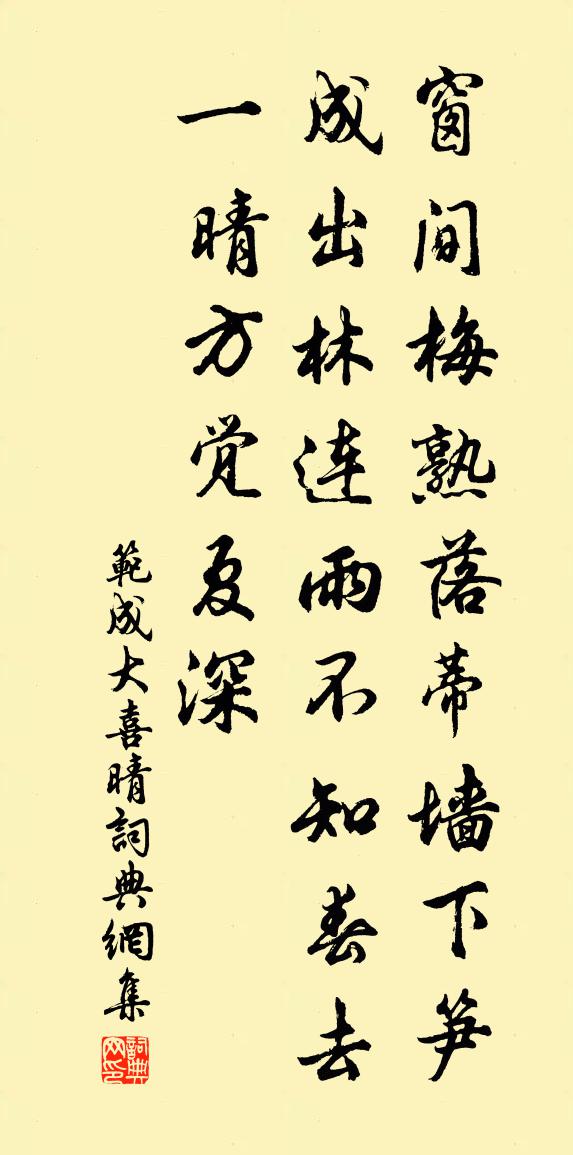 窗间梅熟落蒂墙下笋
成出林连雨不知春去
一晴方觉夏深
範成大喜晴詞典網集
詞典网印